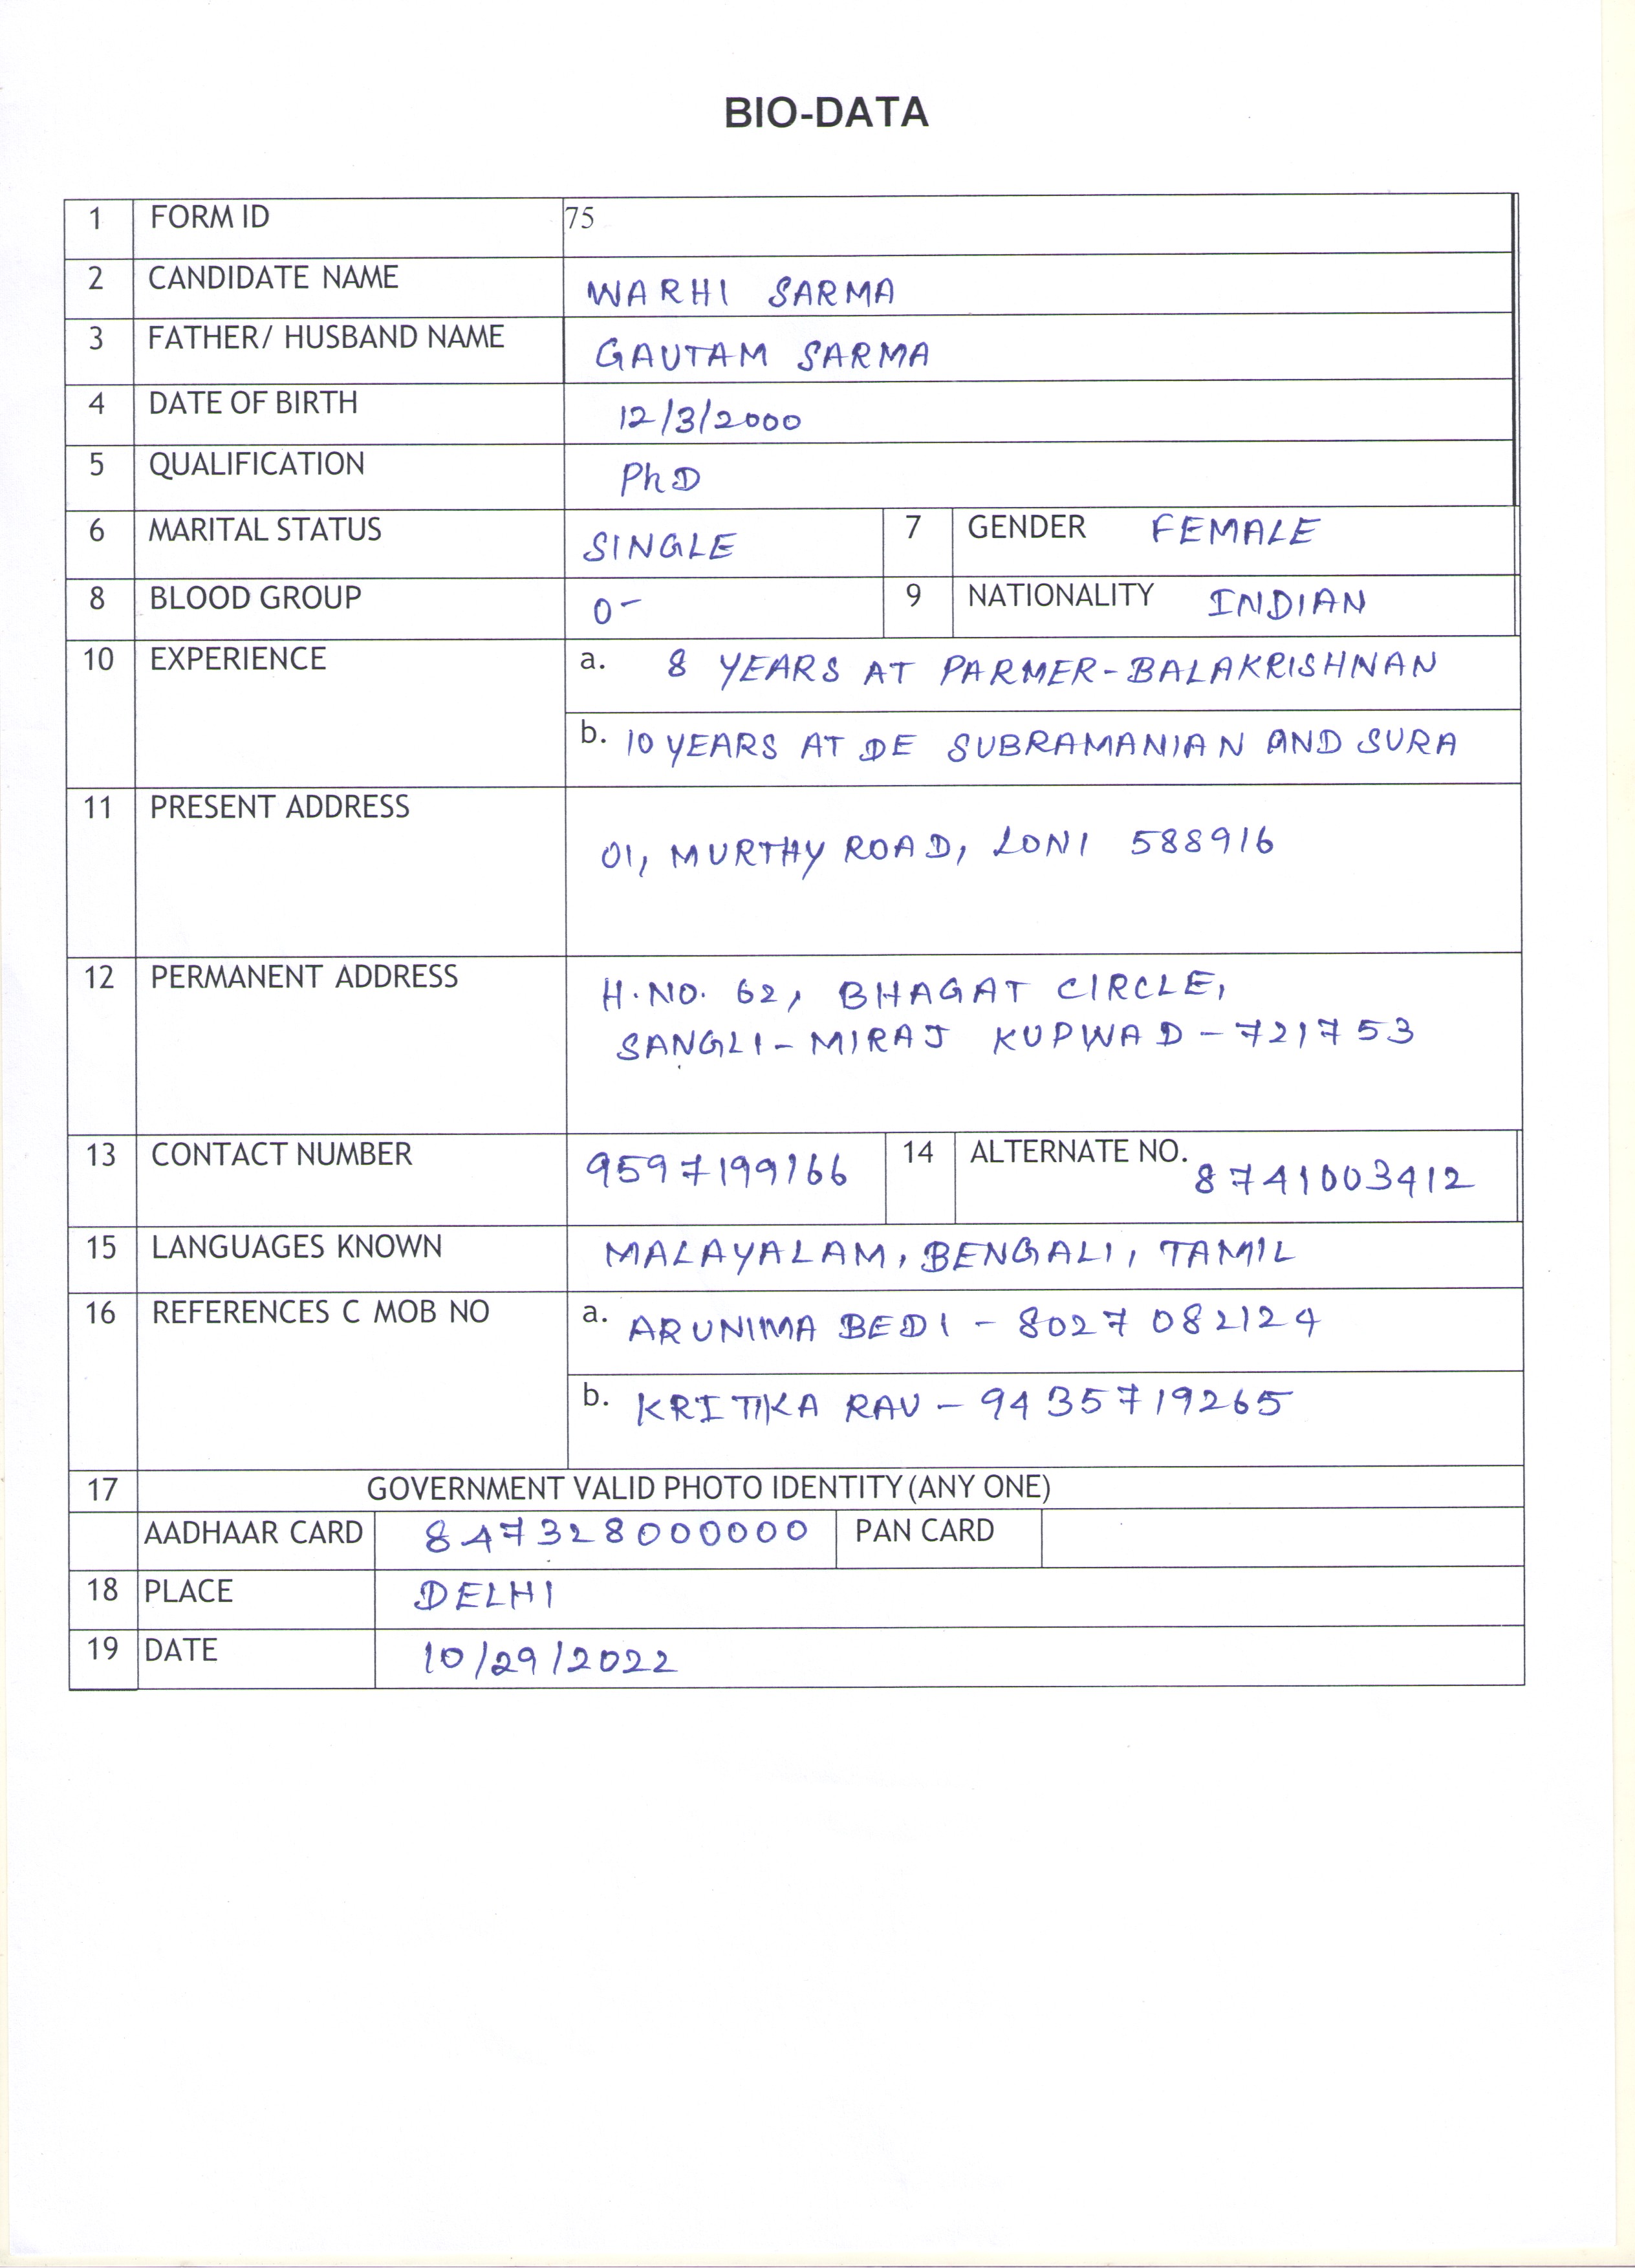 BIO-DATA
1 FORM ID 75
2 CANDIDATE NAME WARHI SARMA
3 FATHER/ HUSBAND NAME GAUTAM SARMA
4 DATE OF BIRTH 12/3/2000
5 QUALIFICATION PhD
6 MARITAL STATUS SINGLE 7 GENDER FEMALE
8 BLOOD GROUP O- 9 NATIONALITY INDIAN
10 EXPERIENCE a. 8 YEARS AT PARMER-BALAKRISHNAN
b. 10 YEARS AT DE SUBRAMANIAN AND SURA
11 PRESENT ADDRESS
01, MURTHY ROAD, LONI 588916
12 PERMANENT ADDRESS H.NO. 62, BHAGAT CIRCLE,
SANGLI-MIRAJ KUPWAD-721753
13 CONTACT NUMBER 9597199166 14 ALTERNATE NO. 8741003412
15 LANGUAGES KNOWN MALAYALAM, BENGALI, TAMIL
16 REFERENCES C MOB NO a. ARUNIMA BEDI - 8027082124
b. KRITIKA RAU - 9435719265
17 GOVERNMENT VALID PHOTO IDENTITY (ANY ONE)
AADHAAR CARD 847328000000 PAN CARD
18 PLACE DELHI
19 DATE 10/29/2022